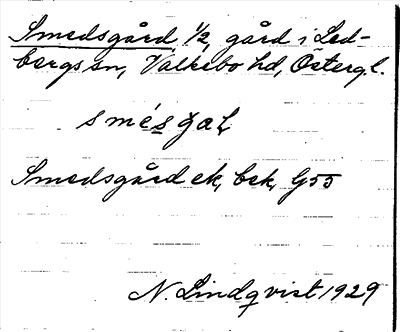 Smedsgård 1/2, gård i Led-
bergs sn, Valkebo hd, Östergl.
Smedsgård ek, bek, G55
N. Lindqvist 1929